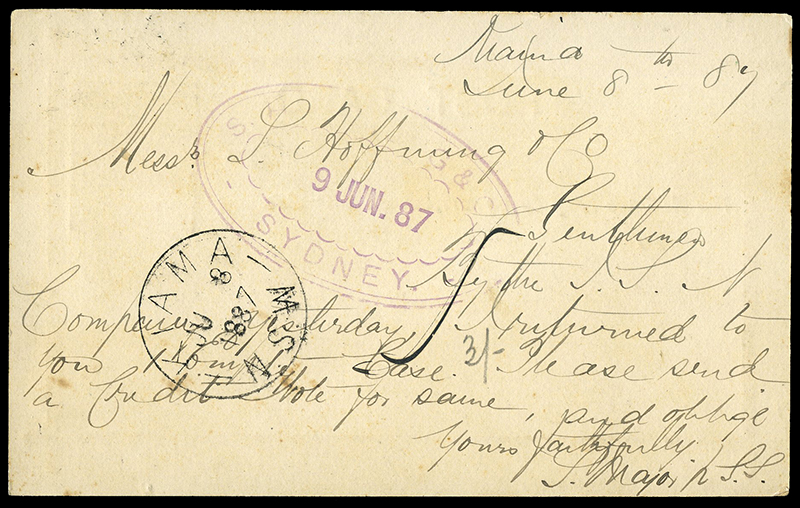 June 8th – 87
Messrs. S. Hoffnung & Co
9 JUN. 87
SYDNEY
Gentlemen
By the S.S. N
Company yesterday, I returned to
you Case. 3/- Please send
a Credit Note for same, and oblige
Yours faithfully
S. Major p S.S.
TAMA
N.S.W
JU 8
1887